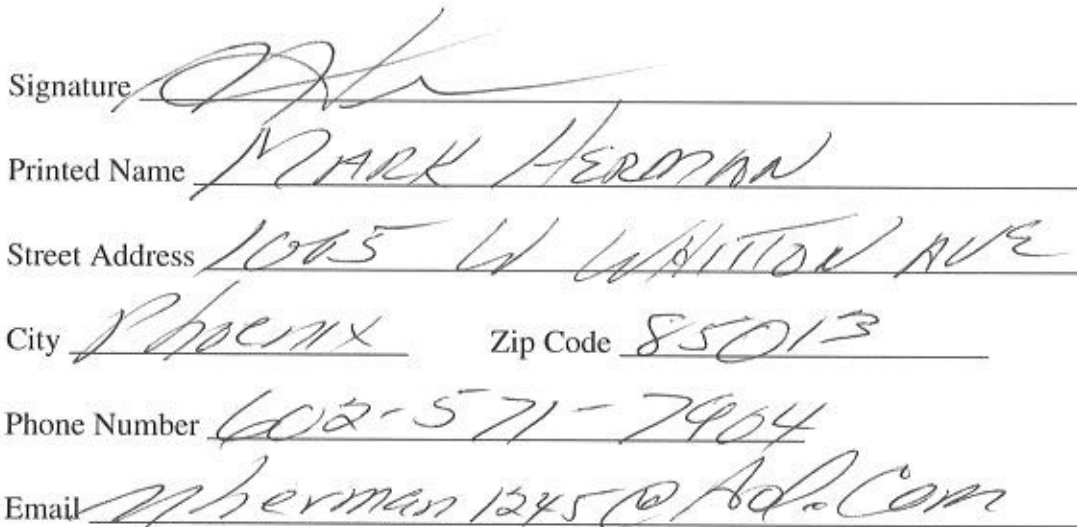 Signature
Printed Name MARK HERMAN
Street Address W WHITTON AVE
City Phoenix Zip Code 85013
Phone Number 602-571-7904
Email mherman1245@Aol.Com